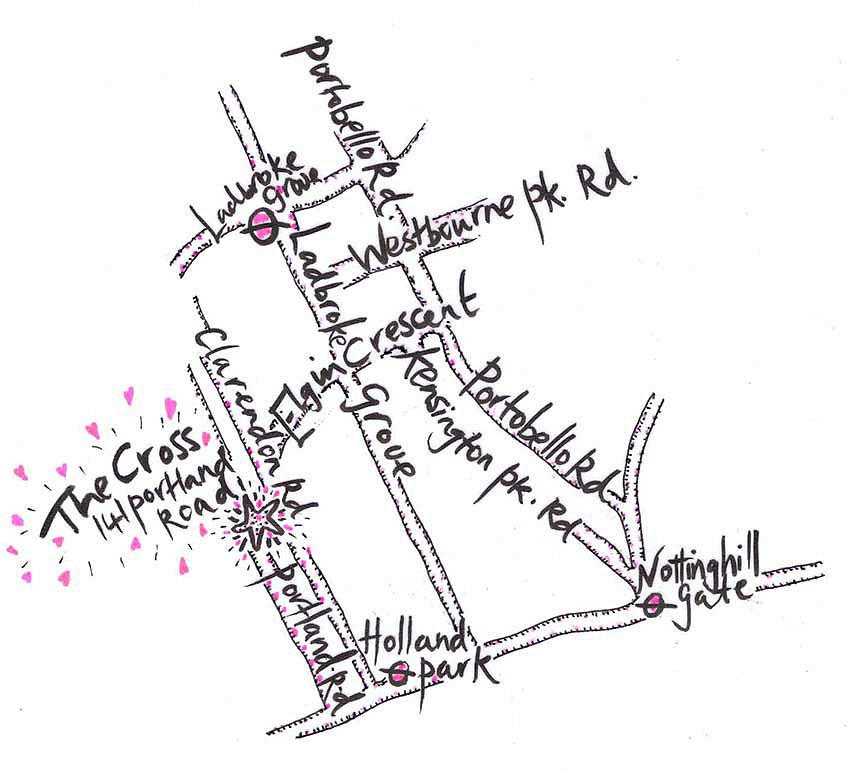 Portobello Rd.
Ladbroke
Grove
Westbourne pk. Rd.
Ladbroke
Grove
Elgin Crescent
Clarendon Rd
Kensington pk. Rd
Portobello Rd
The Cross
141 portland
Road
Portland Rd
Holland
park
Nottinghill
gate